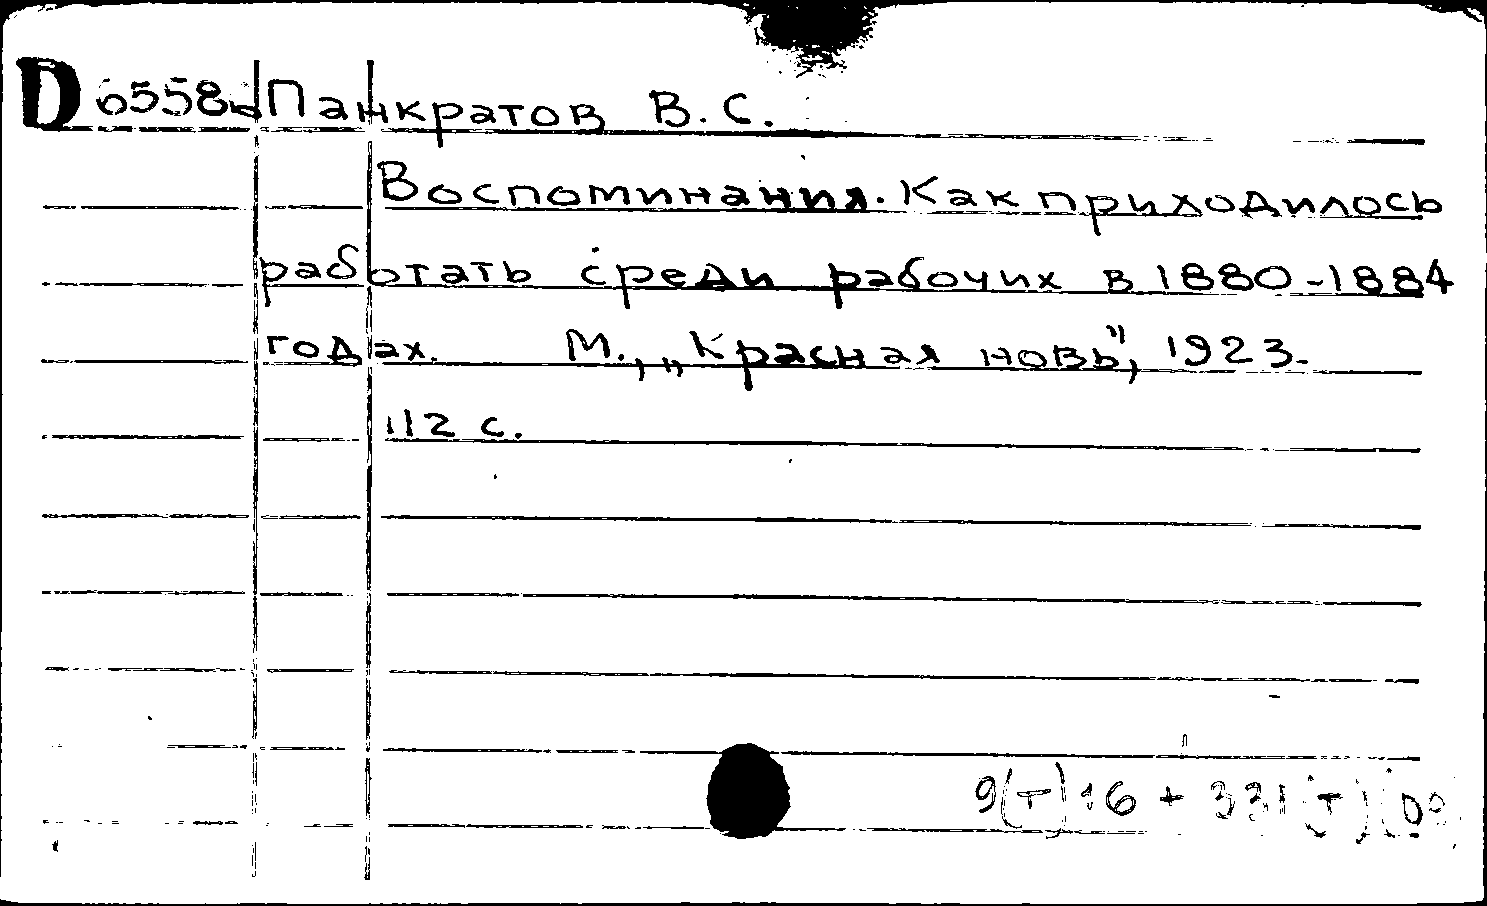 D 6558 Панкратов В. С.
Воспоминания. Как приходилось
работать среди рабочих в 1880-1884
годах. М., „Красная новь", 1923.
112 с.
9(т)16 + 331(т)